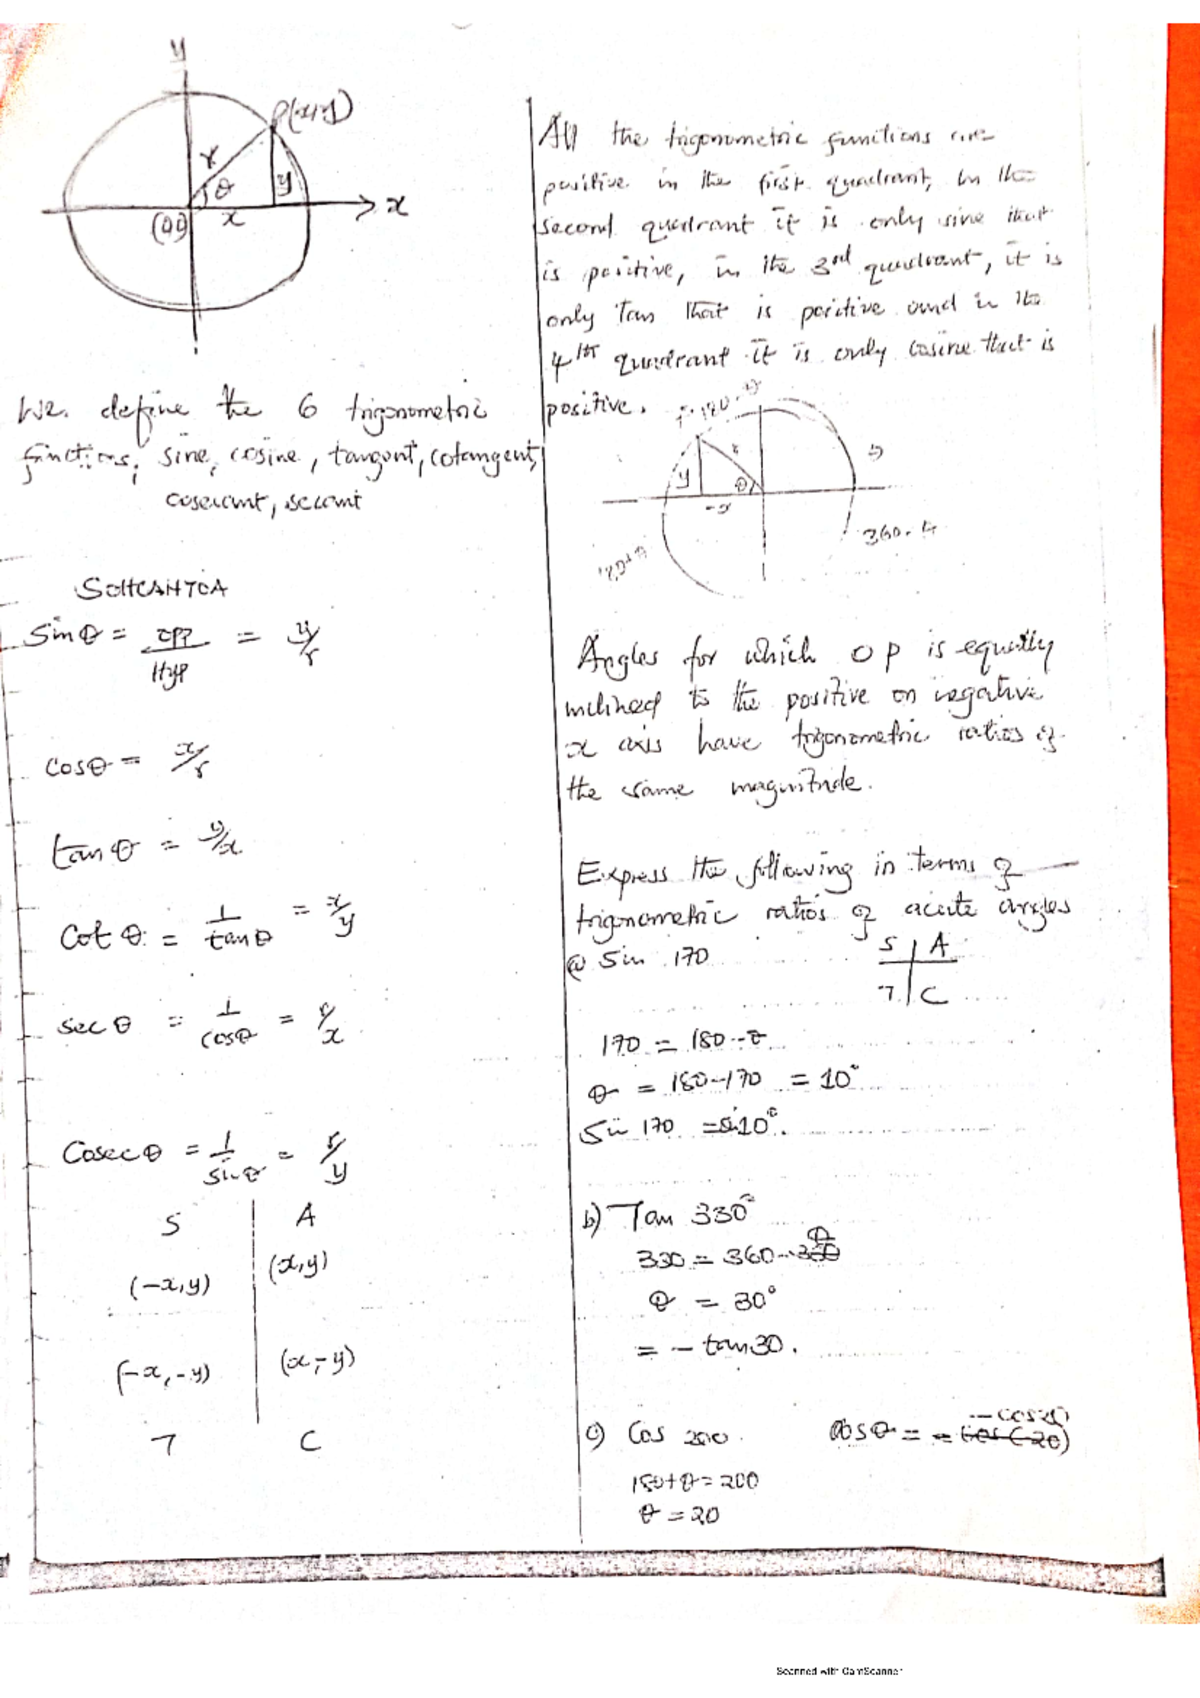 y
P(x,y)
r
θ
y
x
x
(00)
We define the 6 trigonometric
functions; sine, cosine, tangent, cotangent,
cosecant, secant
SOHCAHTOA
Sinθ = opp/Hyp = y/r
cosθ = x/r
tanθ = y/x
Cot θ = 1/tanθ = x/y
secθ = 1/cosθ = r/x
Cosecθ = 1/sinθ = r/y
S A
(-x,y) (x,y)
(-x,-y) (x,-y)
T C
All the trigonometric functions are
positive in the first quadrant, in the
second quadrant it is only sine that
is positive, in the 3rd quadrant, it is
only Tan that is positive and in the
4th quadrant it is only cosine that is
positive.
180-θ
r
y
θ
-x
180+θ
360-
Angles for which OP is equally
inclined to the positive or negative
x axis have trigonometric ratios of
the same magnitude.
Express the following in terms of
trigonometric ratios of acute angles
@ Sin 170
S A
T C
170 = 180-θ
θ = 180-170 = 10°
Sin 170 = sin10°.
b) Tan 330°
330 = 360-θ
θ = 30°
= - tan30.
c) Cos 200
Cosθ = -cos20
180+θ=200
θ = 20
Scanned with CamScanner